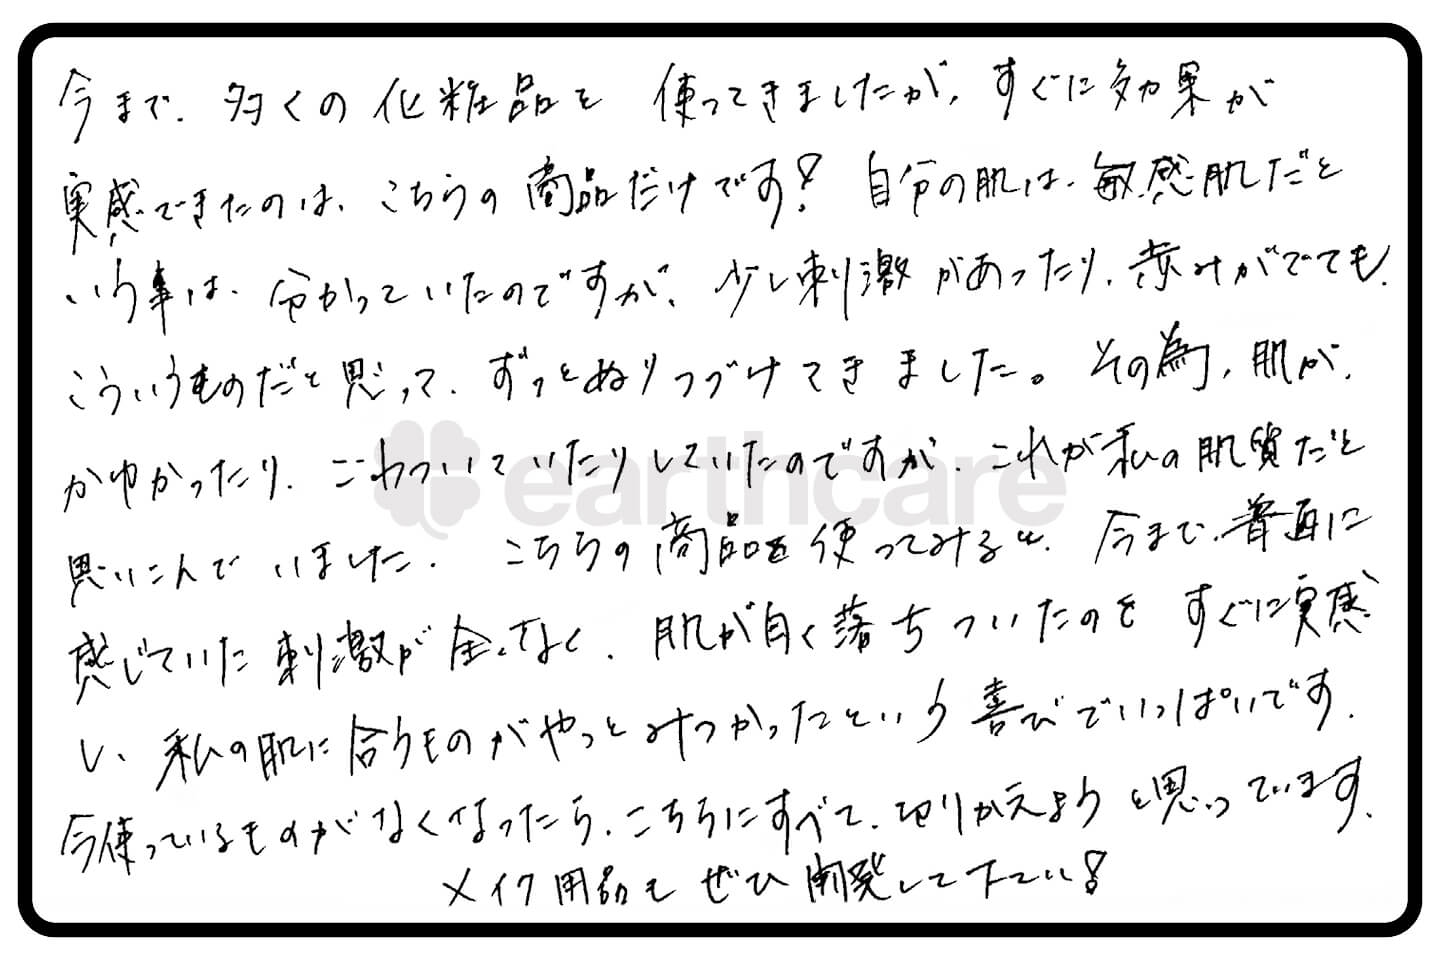 今まで、多くの化粧品を使ってきましたが、すぐに効果が
実感できたのは、こちらの商品だけです! 自分の肌は、敏感肌だと
いう事は、分かっていたのですが、少し刺激があったり、赤みがでても、
こういうものだと思って、ずっとぬりつづけてきました。その為、肌が、
かゆかったり、ごわついていたりしていたのですが、これが私の肌質だと
思いこんでいました。 こちらの商品を使ってみると、今まで、普通に
感じていた刺激が全くなく、肌が白く落ちついたのをすぐに実感
し、私の肌に合うものがやっとみつかったという喜びでいっぱいです。
今使っているものがなくなったら、こちらにすべて、切りかえようと思っています。
メイク用品もぜひ開発して下さい!
earthcare